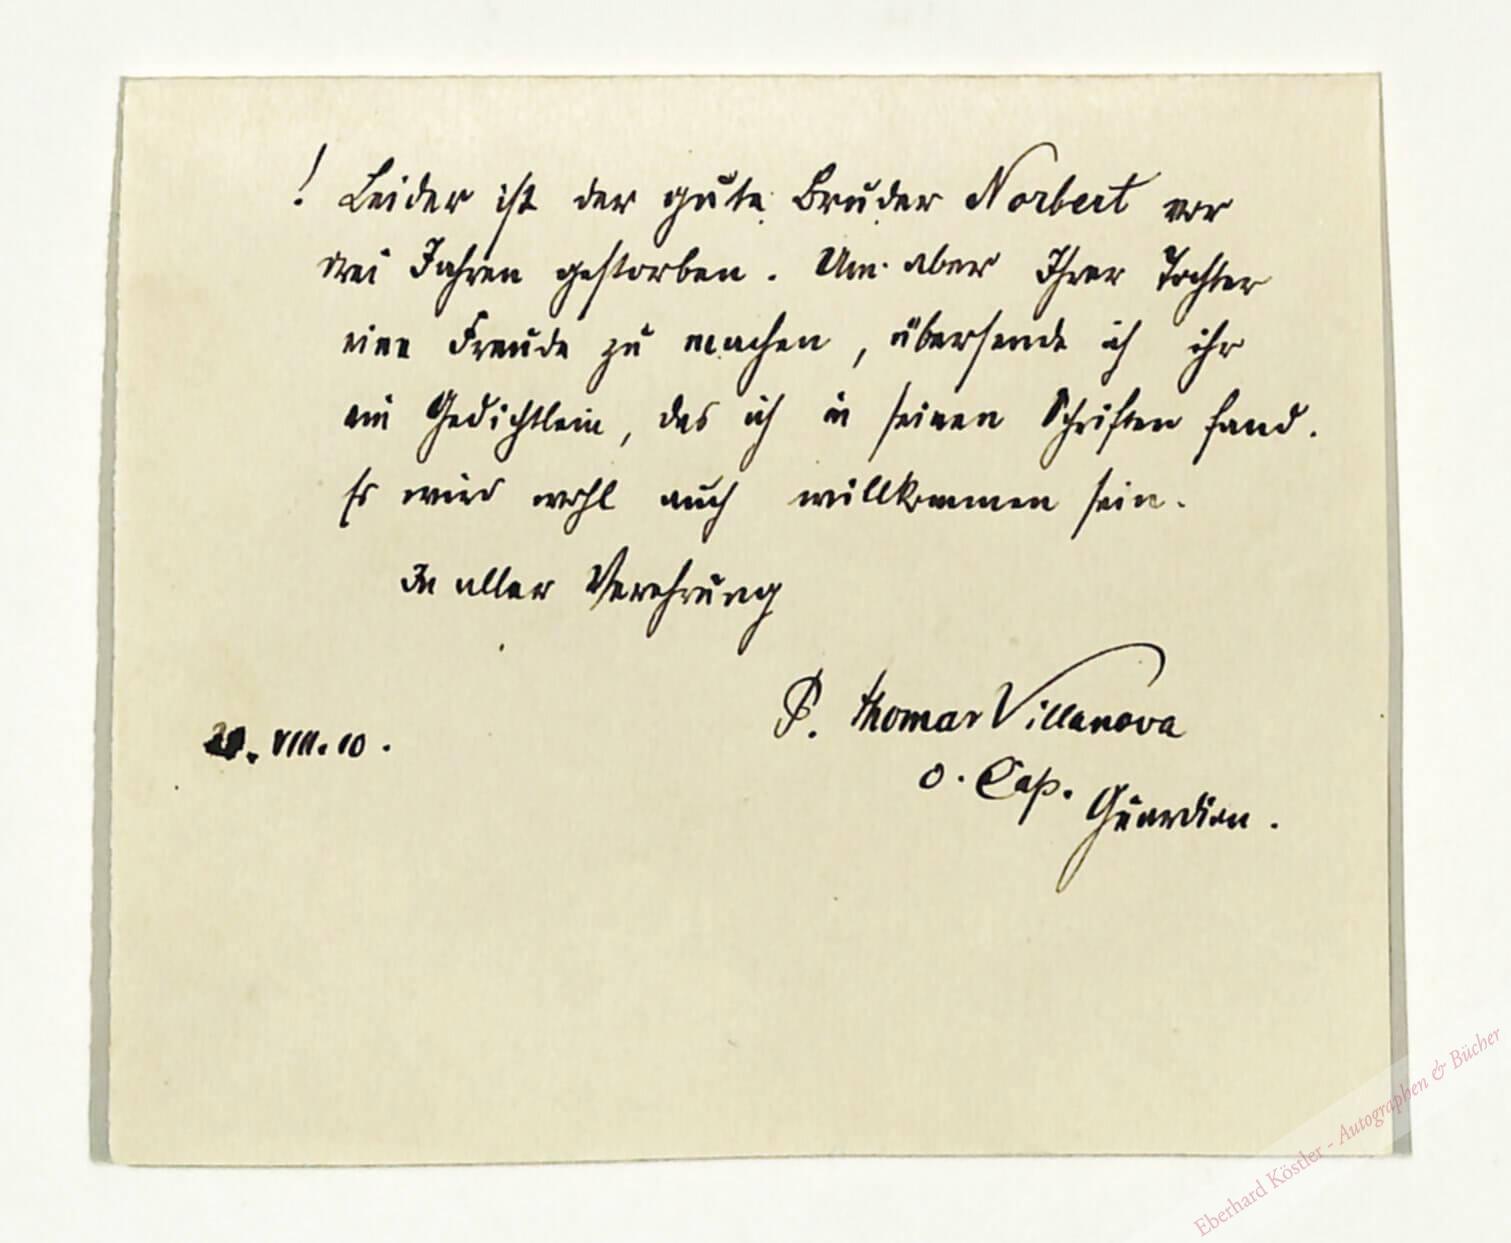 ! Leider ist der gute Bruder Norbert vor
drei Jahren gestorben. Um aber Ihrer Tochter
eine Freude zu machen, übersende ich ihr
ein Gedichtlein, das ich in seinen Schriften fand.
Es wird wohl auch willkommen sein.
In aller Verehrung
P. Thomas Villanova
O. Cap. Guardian.
VIII. 10.
Eberhard Köstler - Autographen & Bücher